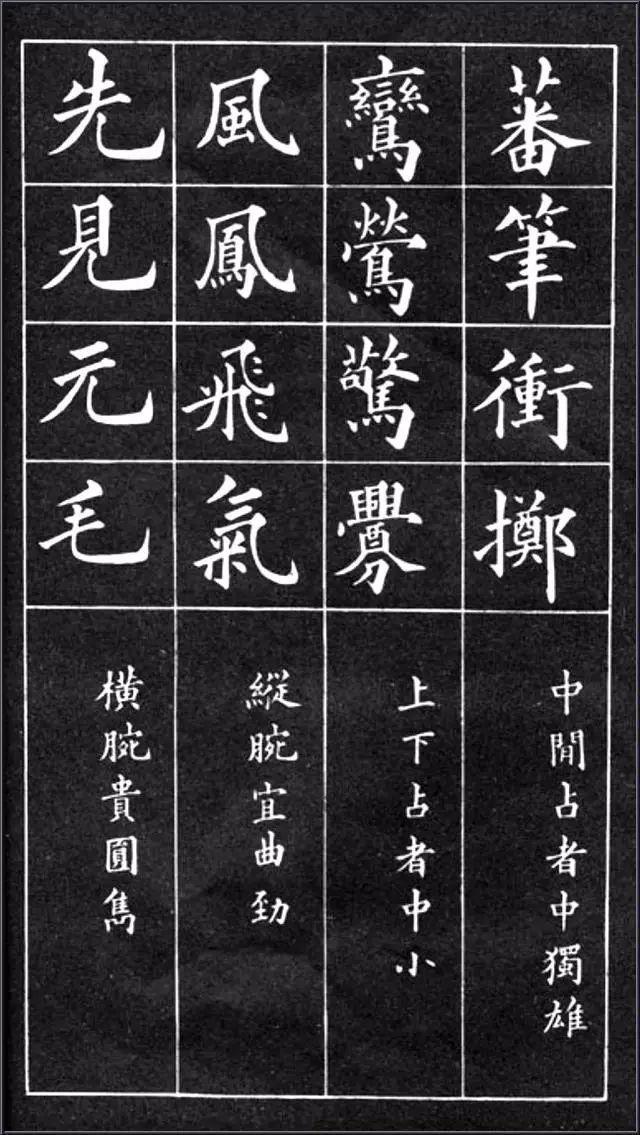 蕃筆衝擲
中閒占者中獨雄
鸞鶯驚釁
上下占者中小
風鳳飛氣
縱腕宜曲勁
先見元毛
橫腕貴圓雋